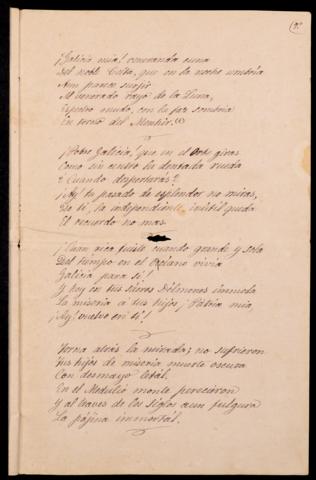 ¡Galicia mia! veneranda cuna
Del noble Celta, que en la noche umbria
Aun parece surjir
Al venerado rayo de la Luna,
Espectro mudo, con la faz sombria
En torno del Menhir. (1)
¡Pobre Galicia, que en el Orbe giras
Como sin centro la dentada rueda
¿Cuando despertarás?
¡Ay! tu pasado de esplendor no miras,
De ti, la independiente, inútil queda
El recuerdo no mas.
¡Cuan rica fuiste cuando grande y sola
Del tiempo en el Océano vivia
Galicia para sí!
Y hoy en tus Dólmenes inmola
La miseria á tus hijos ¡Pátria mia
¡Ay! vuelve en ti!
Torna atrás la mirada; no sufrieron
Tus hijos de miseria muerte oscura
Con desmayo letal.
En el Medulio monte perecieron
Y al traves de los siglos aun fulgura
La pájina inmortal.